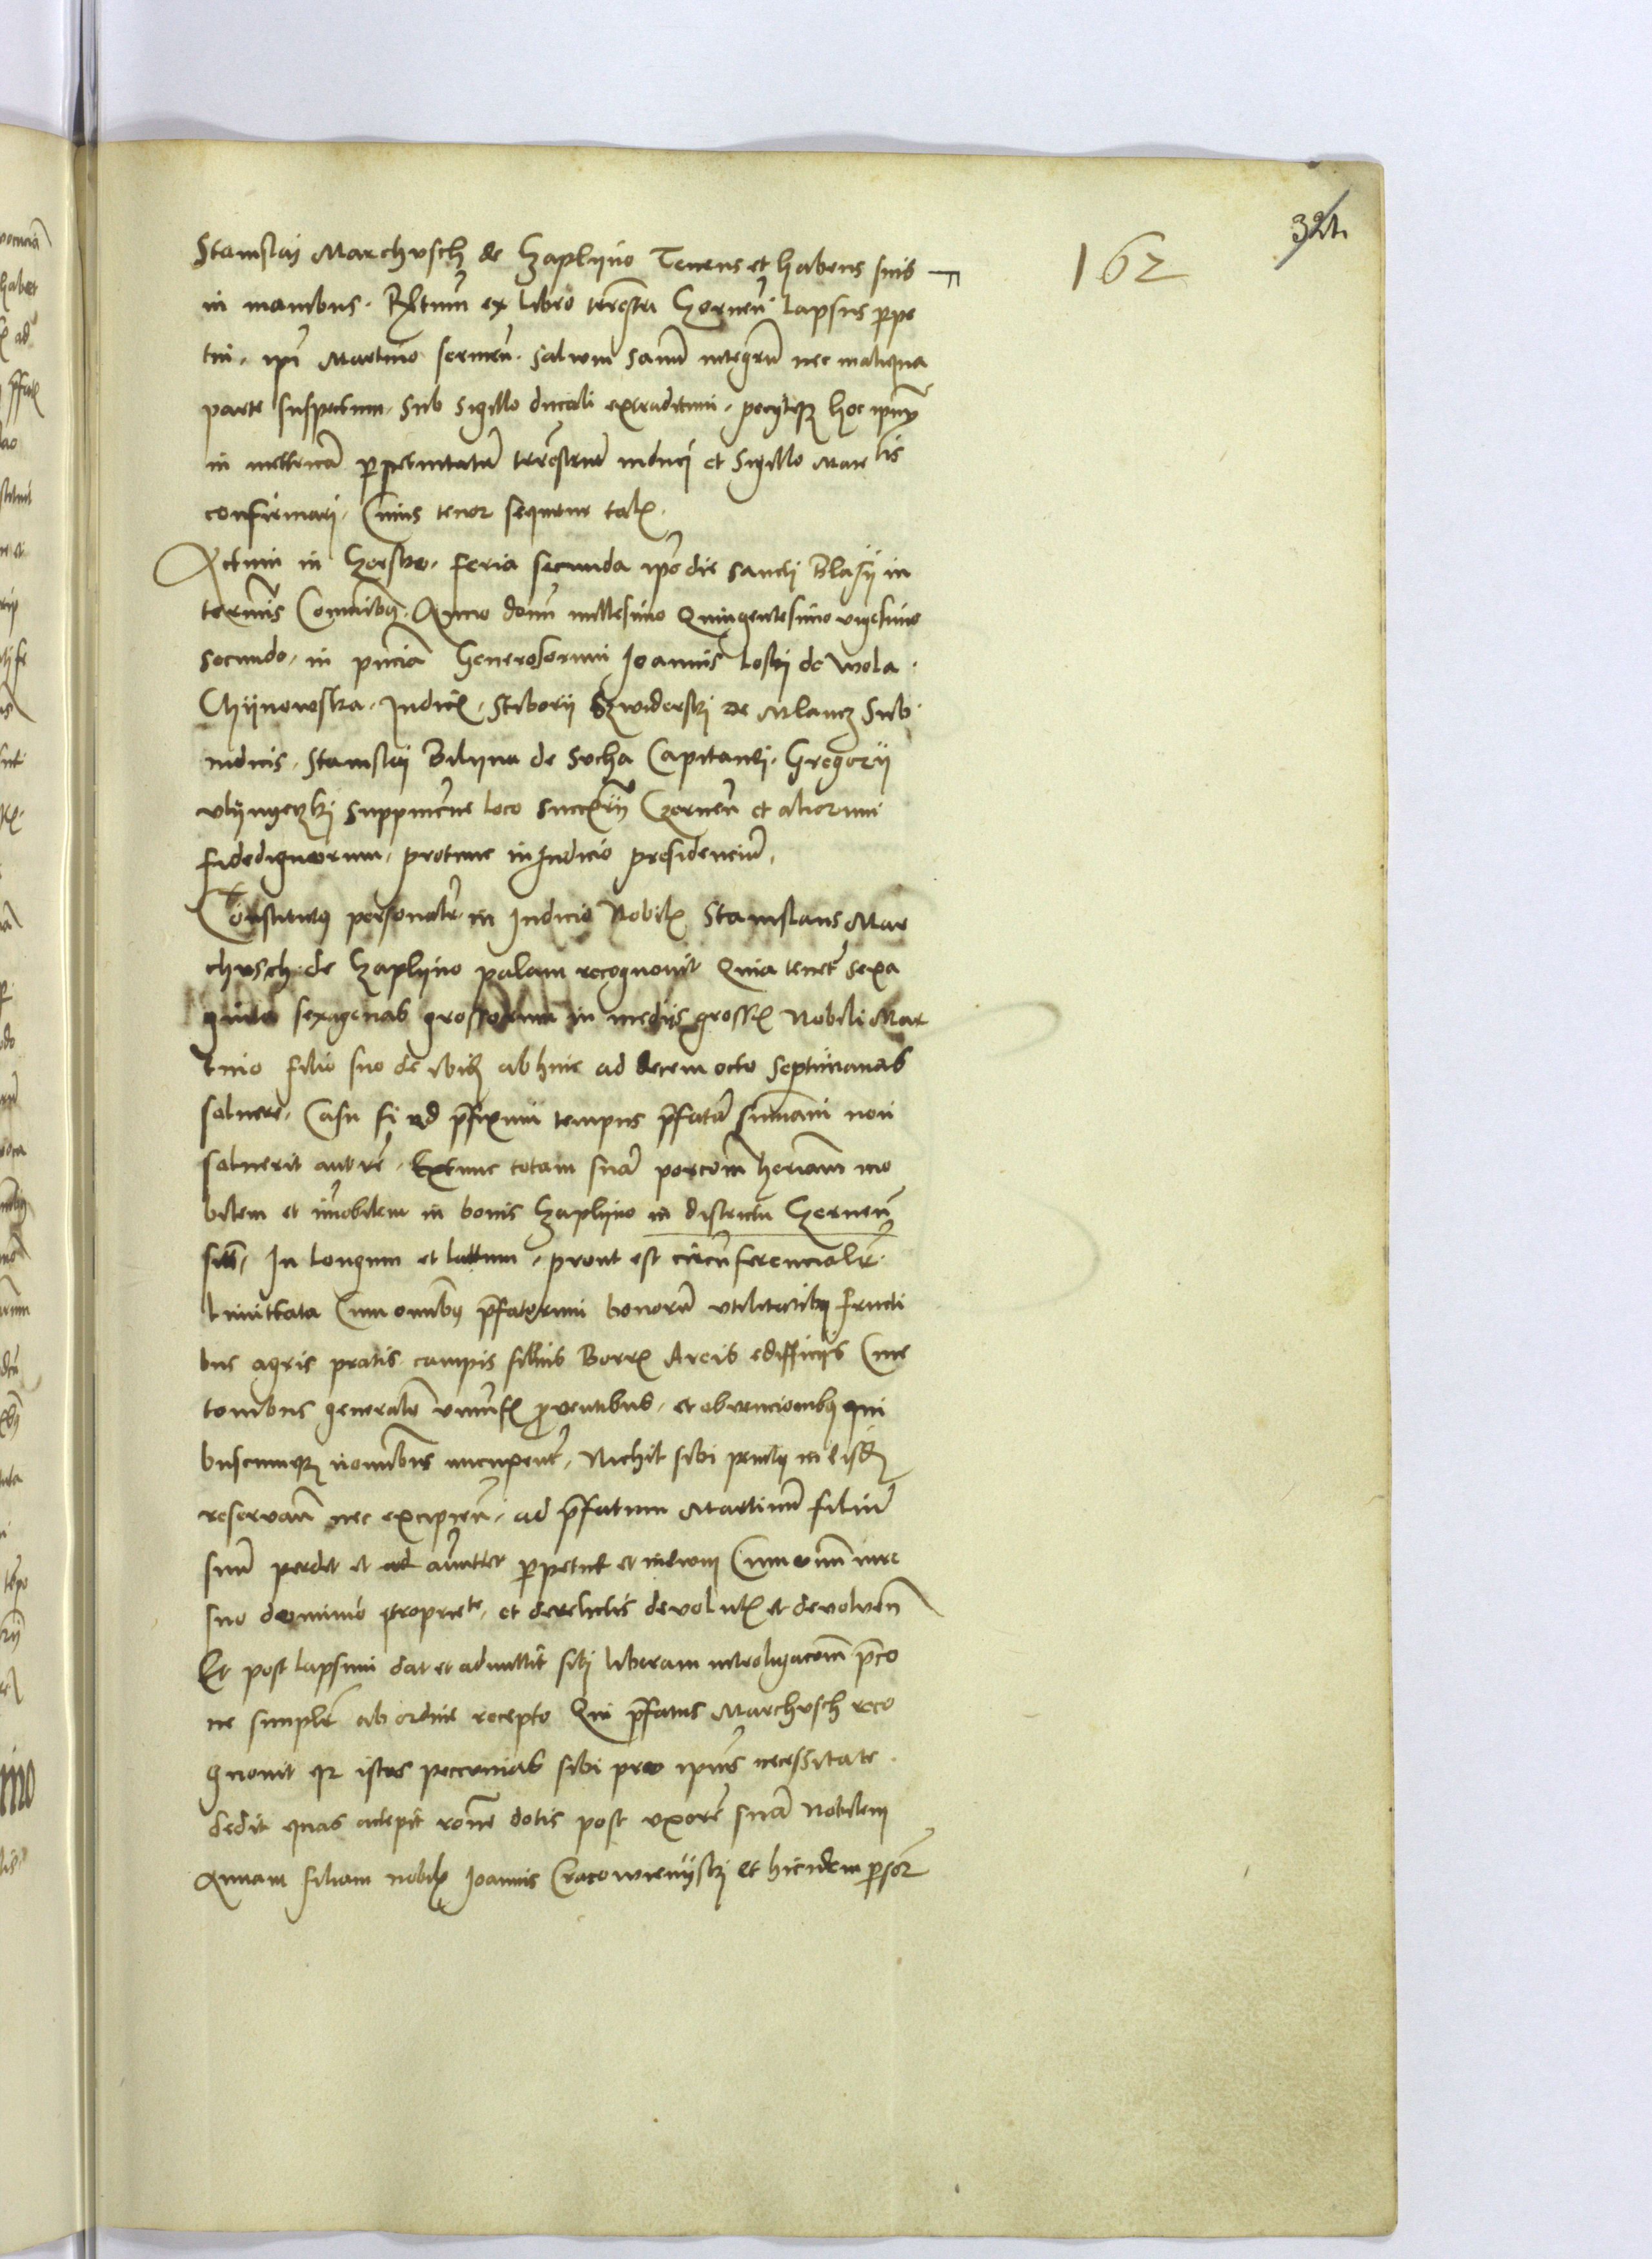 324
162
Stanislai Marchusch de Czaplyno Tenens et habens suis
in manibus. Rptum ex libro terrestri Czernen. lapsus perpe
tui. ipi Martino servien. salvum sanum integrum nec in aliqua
parte suspectum. sub sigillo ducali extraditum. petytque hoc ipm
in metricam perpetuitatum terrestrem induci et Sigillo Mtis
confirmari. Cuius tenor sequitur talis.
Actum in Czersko. feria secunda ipo die sancti Blasij in
terminis Communibus. Anno domini millesimo Quingentesimo vigesimo
secundo. in pncia Generosorum Joannis Loski de Wola
Chijnowska. Judicis. Stiborij Szwiderski de Mlancz Sub
iudicis. Stanislai Bilijna de Socha Capitanei. Gregorij
supprimente loco Czernen et aliorum
fidedignorum. protunc in Judicio presidencium.
Constitutus personaliter in Judicio Nobilis Stanislaus Mar
chusch de Czaplyno palam recognovit Quia tenet sexa
ginta sexagenas grossorum in medijs grossis Nobili Mar
tino filio suo de ibidem abhinc ad decem octo septimanas
solvere. Casu si ad prefixum tempus prefatam summam non
solverit Extunc totam suam porcionem heriam mo
bilem et immobilem in bonis Czaplyno in districtu Czernen
sitis. In longum et lattum. prout est circumferencialiter
limittata Cum omnibus prefatorum bonorum utilitatibus fructi
bus agris pratis campis silvis Borris Areis edifficijs Cme
tonibus generaliter universis proventibus. et obvencionibus qui
buscumque nominibus nuncupentur. Nichil sibi penitus in eisdem
reservan nec excipien. ad prefatum Martinum filium
suum perdet et ad amittet perpetue et in ewum Cum omni iure
suo dominio propriete. et derelictis devolutis et devolven
Et post lapsum dat et admittit sibi liberam introligacionem preco
ne simplr ab ordine recepto Qui prefatus Marchusch reco
gnovit quia istas peccunias sibi pro ipius necessitate
dedit quas accepit rone dotis post uxorem suam Nobilem
Annam filiam nobilis Joannis Cracowienyski et hic idem personaliter